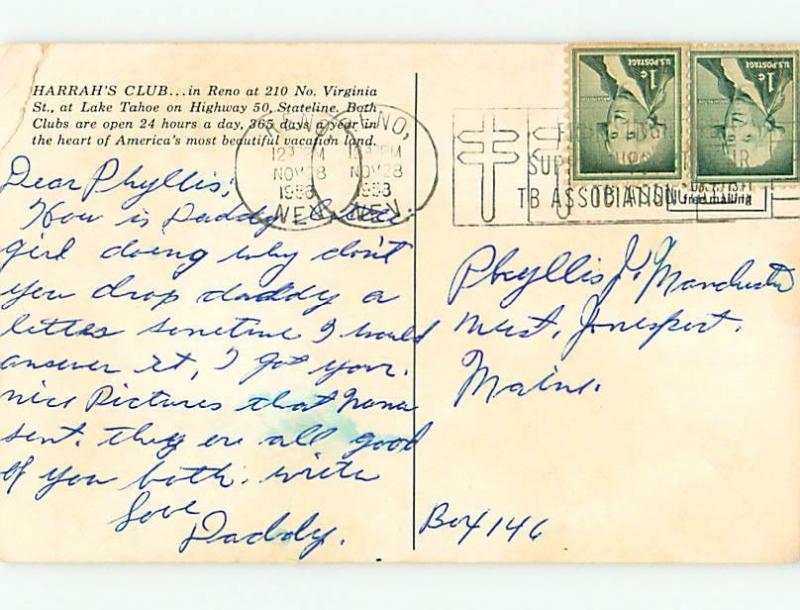 HARRAH'S CLUB...in Reno at 210 No. Virginia
St., at Lake Tahoe on Highway 50, Stateline. Both
Clubs are open 24 hours a day, 365 days a year in
the heart of America's most beautiful vacation land.
Dear Phyllis;
How is Daddy Little
girl doing why don't
you drop daddy a
letter sometime I would
answer it, I got your.
nice Pictures that Nana
sent. they are all good
of you both. write
Love
Daddy.
RENO,
12 PM
NOV 28
1958
NEV.
RENO,
12 PM
NOV 28
1958
NEV.
FIGHT
SUPPORT YOUR
TB ASSOCIATION
U.S. POSTAGE
1¢
U.S. POSTAGE
1¢
free mailing
Phyllis J. Manchester
West, Jonesport.
Maine.
Box 146